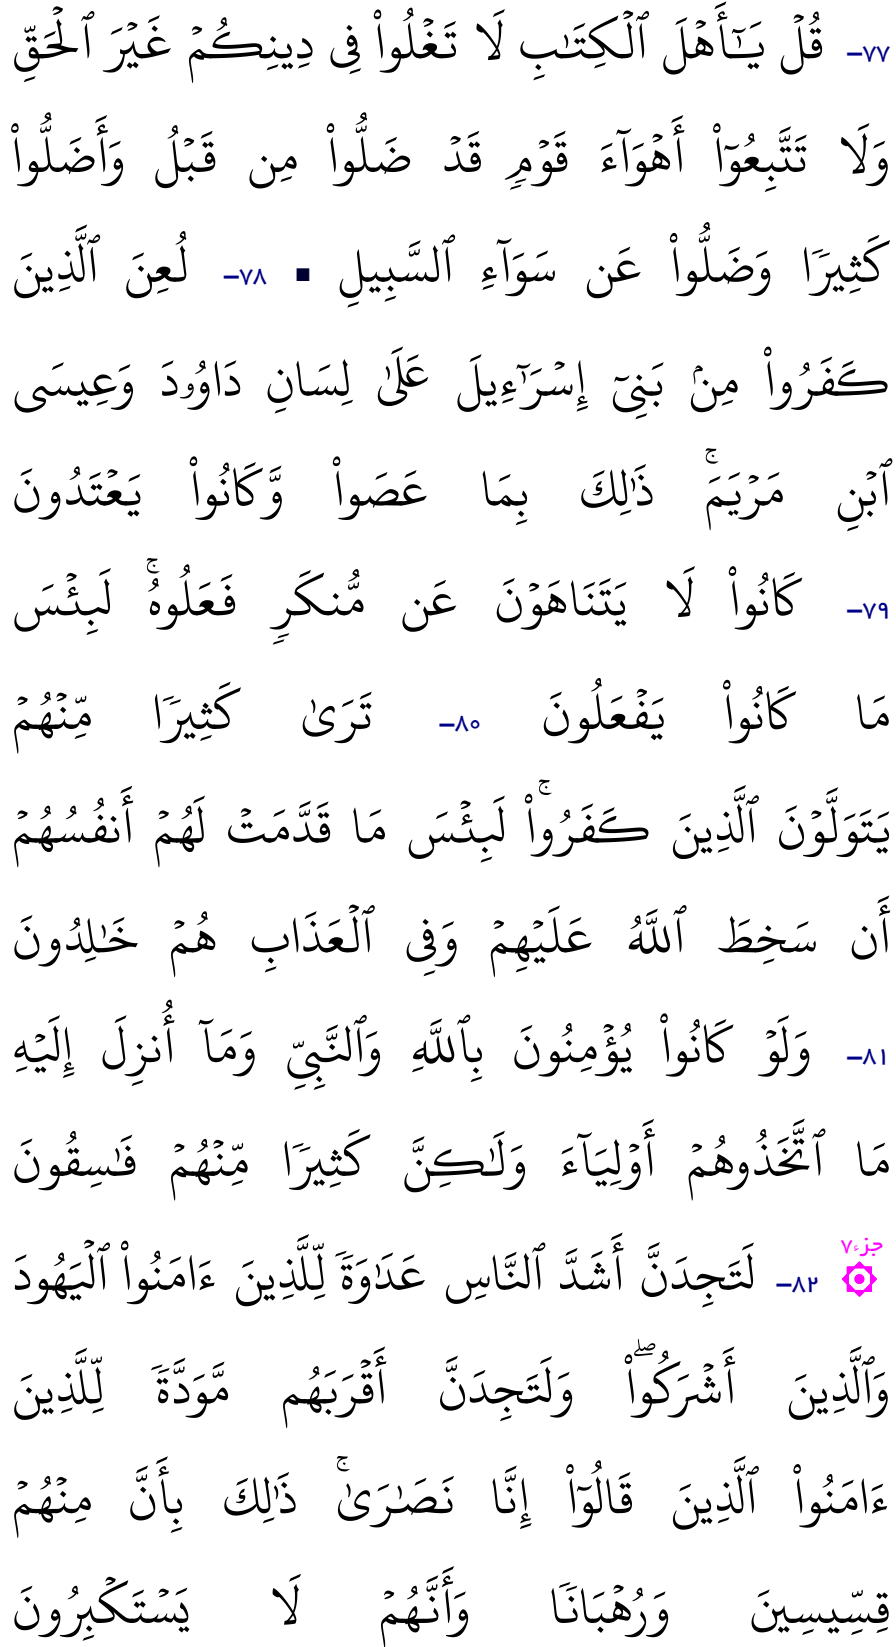 ٧٧– قُلۡ يَـٰٓأَهۡلَ ٱلۡكِتَـٰبِ لَا تَغۡلُواْ فِى دِينِكُمۡ غَيۡرَ ٱلۡحَقِّ
وَلَا تَتَّبِعُوٓاْ أَهۡوَآءَ قَوۡمٍ۬ قَدۡ ضَلُّواْ مِن قَبۡلُ وَأَضَلُّواْ
كَثِيرً۬ا وَضَلُّواْ عَن سَوَآءِ ٱلسَّبِيلِ ▪ ٧٨– لُعِنَ ٱلَّذِينَ
ڪَفَرُواْ مِنۢ بَنِىٓ إِسۡرَٲٓءِيلَ عَلَىٰ لِسَانِ دَاوُۥدَ وَعِيسَى
ٱبۡنِ مَرۡيَمَ‌ۚ ذَٲلِكَ بِمَا عَصَواْ وَّڪَانُواْ يَعۡتَدُونَ
٧٩– ڪَانُواْ لَا يَتَنَاهَوۡنَ عَن مُّنڪَرٍ۬ فَعَلُوهُ‌ۚ لَبِئۡسَ
مَا ڪَانُواْ يَفۡعَلُونَ ٨٠– تَرَىٰ ڪَثِيرً۬ا مِّنۡهُمۡ
يَتَوَلَّوۡنَ ٱلَّذِينَ ڪَفَرُواْ‌ۚ لَبِئۡسَ مَا قَدَّمَتۡ لَهُمۡ أَنفُسُهُمۡ
أَن سَخِطَ ٱللَّهُ عَلَيۡهِمۡ وَفِى ٱلۡعَذَابِ هُمۡ خَـٰلِدُونَ
٨١– وَلَوۡ ڪَانُواْ يُؤۡمِنُونَ بِٱللَّهِ وَٱلنَّبِىِّ وَمَآ أُنزِلَ إِلَيۡهِ
مَا ٱتَّخَذُوهُمۡ أَوۡلِيَآءَ وَلَـٰكِنَّ ڪَثِيرً۬ا مِّنۡهُمۡ فَـٰسِقُونَ
جزء٧
۞ ٨٢– لَتَجِدَنَّ أَشَدَّ ٱلنَّاسِ عَدَٲوَةً۬ لِّلَّذِينَ ءَامَنُواْ ٱلۡيَهُودَ
وَٱلَّذِينَ أَشۡرَكُواْ‌ۖ وَلَتَجِدَنَّ أَقۡرَبَهُم مَّوَدَّةً۬ لِّلَّذِينَ
ءَامَنُواْ ٱلَّذِينَ قَالُوٓاْ إِنَّا نَصَـٰرَىٰ‌ۚ ذَٲلِكَ بِأَنَّ مِنۡهُمۡ
قِسِّيسِينَ وَرُهۡبَانً۬ا وَأَنَّهُمۡ لَا يَسۡتَڪۡبِرُونَ